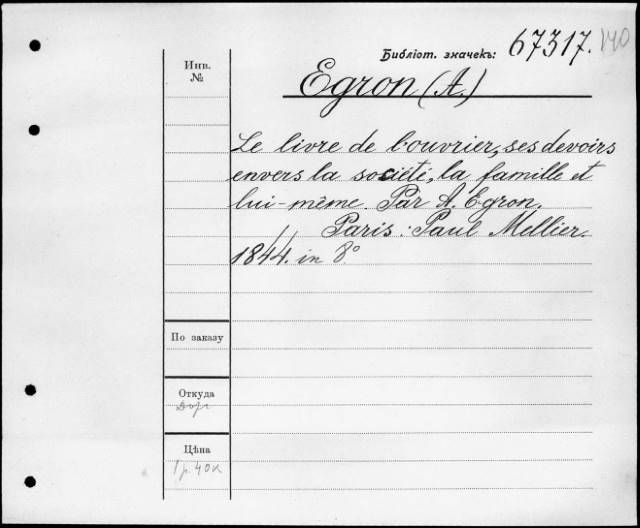 Библіот. значекъ: 67317. 140
Инв.
№
Egron (A.)
Le livre de l'ouvrier, ses devoirs
envers la société, la famille et
lui-même. Par A. Egron.
Paris: Paul Mellier.
1844. in 8°
По заказу
Откуда
Цѣна
1 р. 40 к